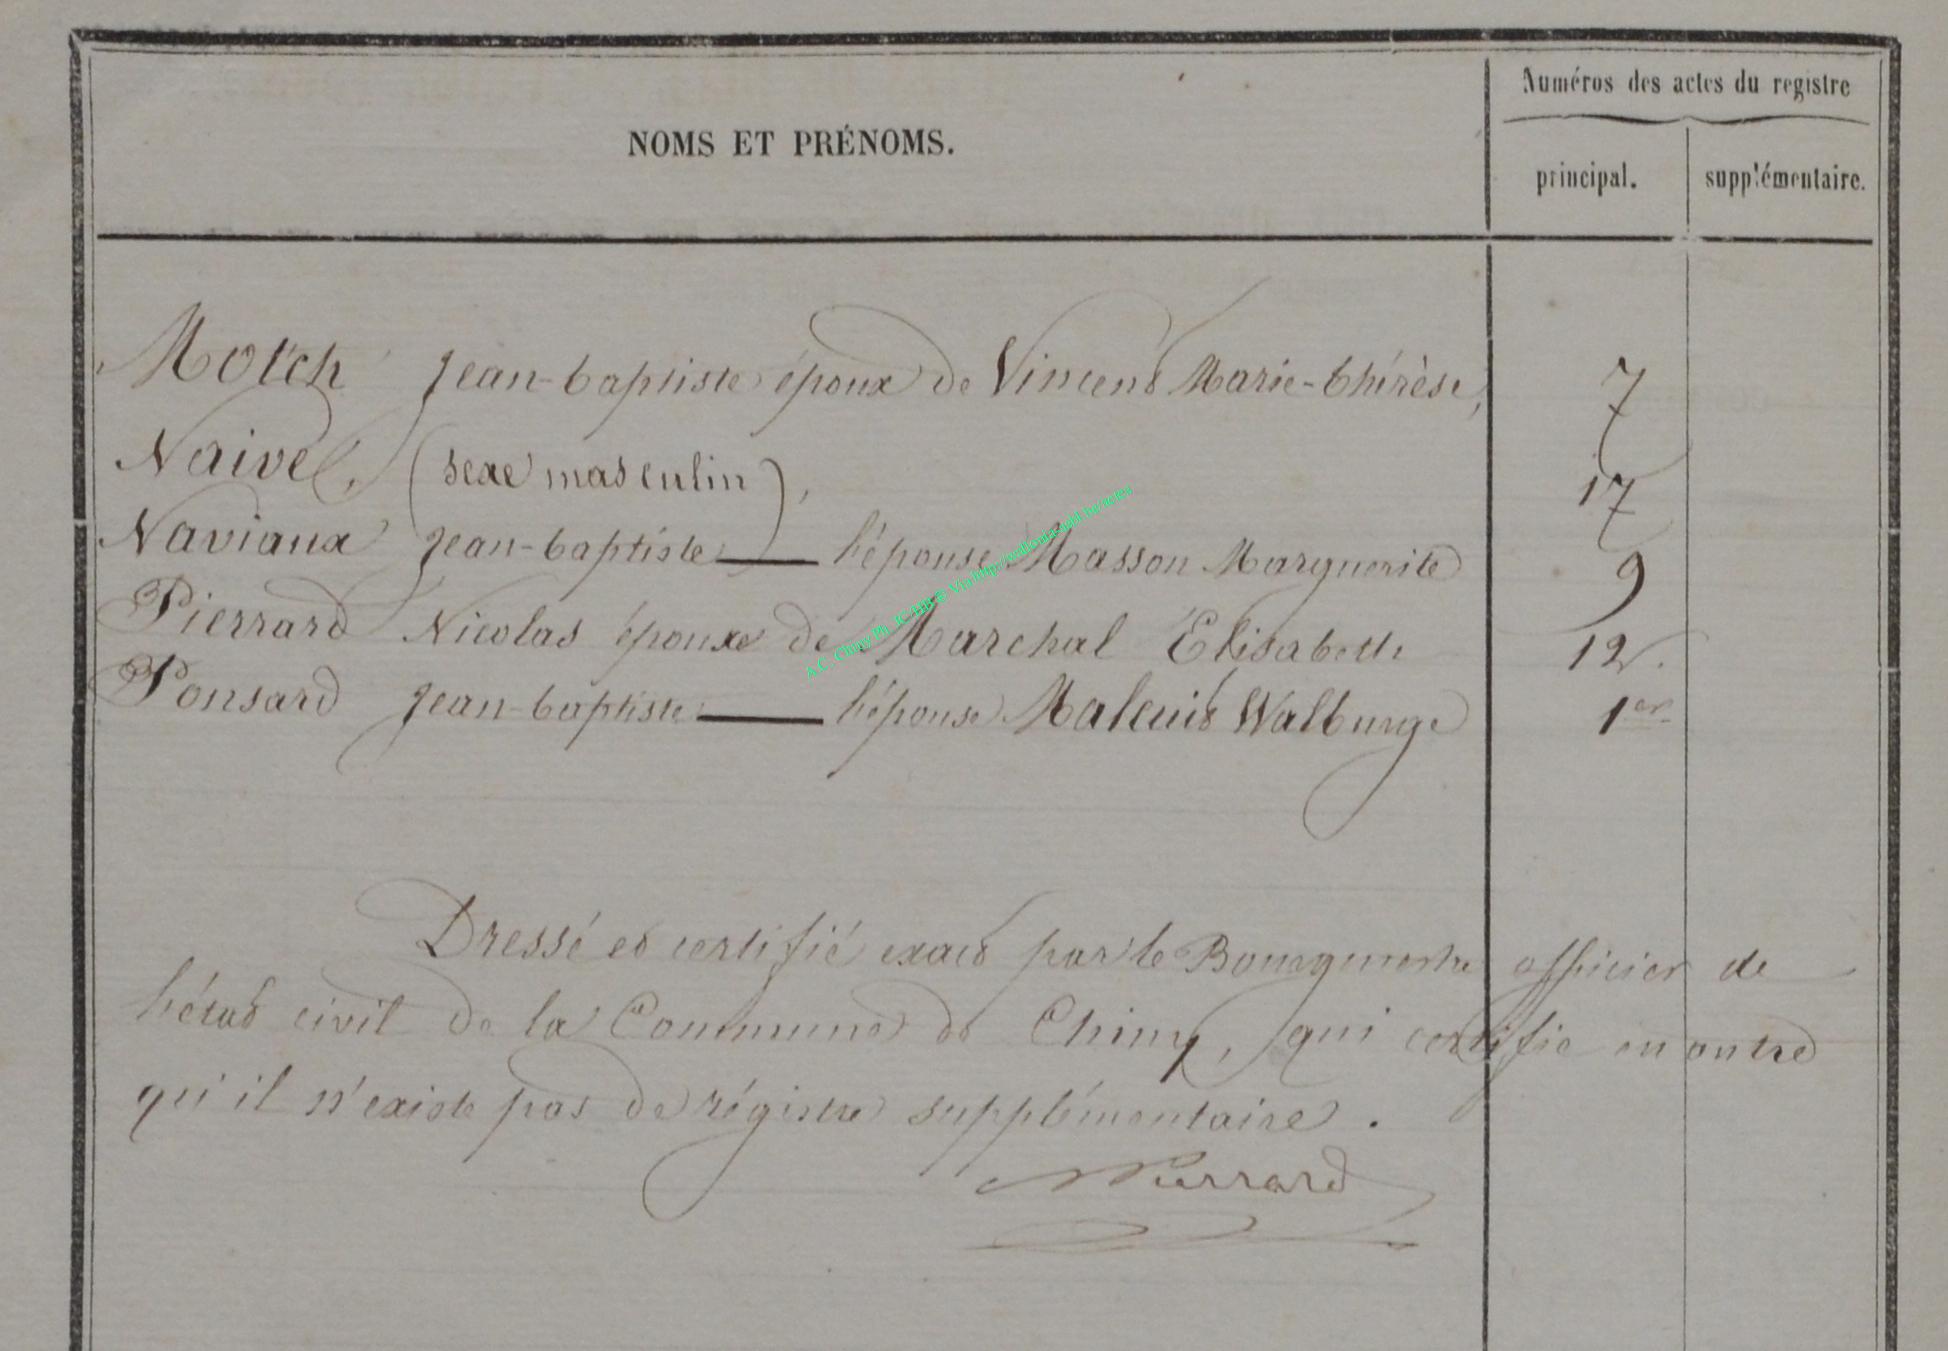 NOMS ET PRÉNOMS.
Numéros des actes du registre
principal.
supplémentaire.
Motch Jean-baptiste époux de Vincent Marie-thérèse, 7
Naivel, (sexe masculin), 17
Naviaux Jean-baptiste — l'épouse Masson Marguerite 9
Pierrard Nicolas époux de Marchal Elisabeth 12.
Ponsard Jean-baptiste — l'épouse Maleuid Walburge 1er
Dressé et certifié exact par le Bourgmestre officier de
l'état civil de la Commune de Chiny, qui certifie en outre
qu'il n'existe pas de régistre supplémentaire.
NPierrard